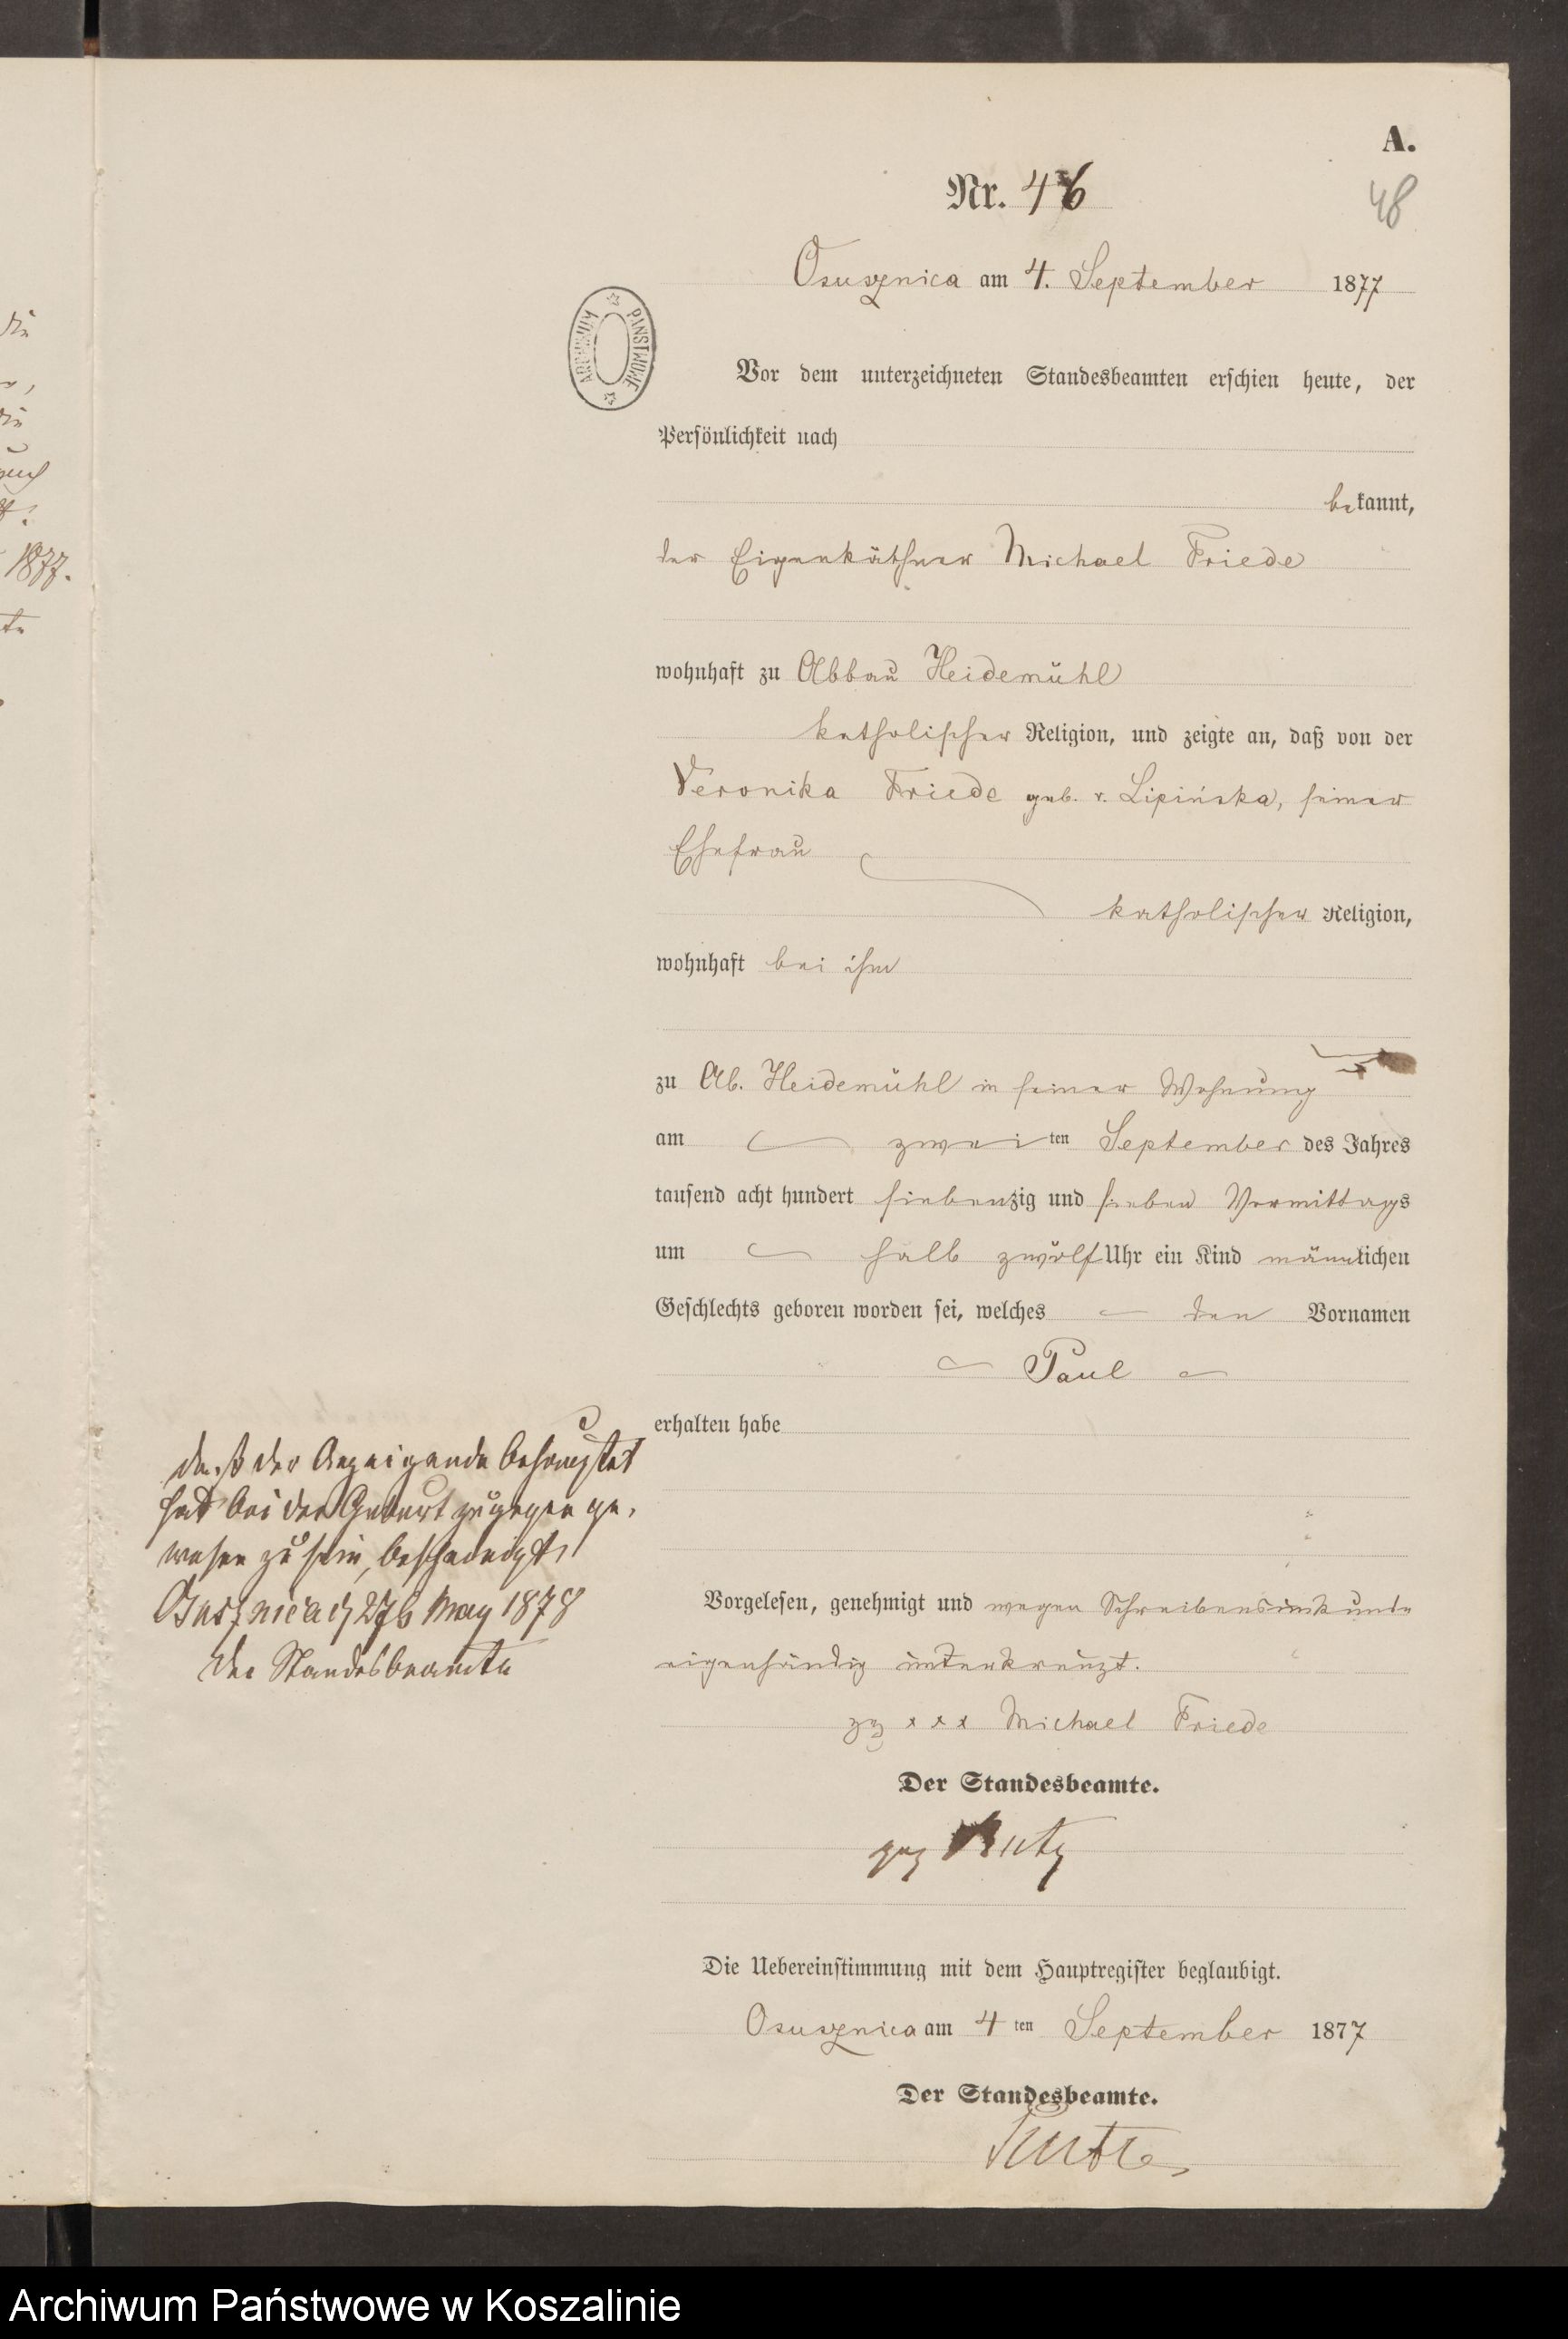 A.
Nr. 46
48
Osusznica am 4. September 1877
ARCHIWUM PAŃSTWOWE
Vor dem unterzeichneten Standesbeamten erschien heute, der
Persönlichkeit nach
bekannt,
der Eigenkäthner Michael Friede
wohnhaft zu Abbau Heidemühl
katholischer Religion, und zeigte an, daß von der
Veronika Friede geb. v. Lipińska, seiner
Ehefrau
katholischer Religion,
wohnhaft bei ihm
zu Ab. Heidemühl in seiner Wohnung
am zweiten September des Jahres
tausend acht hundert siebenzig und sieben Vormittags
um halb zwölf Uhr ein Kind männlichen
Geschlechts geboren worden sei, welches den Vornamen
Paul
erhalten habe
daß der Anzeigende behauptet
hat bei der Geburt zugegen ge-
wesen zu sein, bescheinigt,
May 1878
Der Standesbeamte
Vorgelesen, genehmigt und wegen Schreibensunkunde
eigenhändig unterkreuzt.
xxx Michael Friede
Der Standesbeamte.
gez
Die Uebereinstimmung mit dem Hauptregister beglaubigt.
Osusznica am 4ten September 1877
Der Standesbeamte.
die
die
1877.
Archiwum Państwowe w Koszalinie